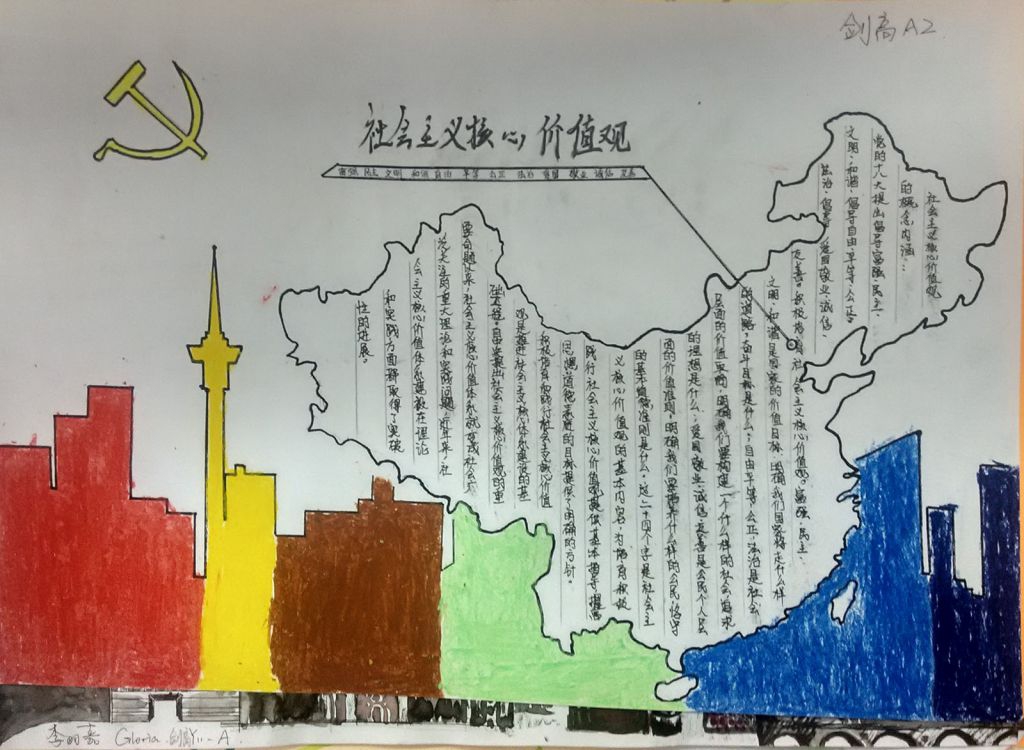 剑高A2
社会主义核心价值观
富强 民主 文明 和谐 自由 平等 公正 法治 爱国 敬业 诚信 友善
社会主义核心价值观
的概念内涵：
党的十八大提出倡导富强、民主、
文明、和谐，倡导自由、平等、公正、
法治，倡导爱国、敬业、诚信、
友善。积极培育社会主义核心价值观。富强、民主、
文明、和谐是国家的价值目标，明确我们国家将走什么样
的道路，奋斗目标是什么；自由平等，公正、法治是社会
层面的价值取向，明确我们要构建一个什么样的社会，追求
的理想是什么、爱国、敬业、诚信、友善是公民个人层
面的价值准则，明确我们要培养什么样的公民，恪守
的基本道德准则是什么。这二十四个字是社会主
义核心价值观的基本内容，为培育和践
行社会主义核心价值观提供了基本遵循
思想道德
积极培育和践行社会主义核心价值
观是推进社会主义核心体系建设的基
础工程。自中央提出社会主义核心价值观的重
要命题以来，社会主义核心价值体系就成为社会
关注的重大理论和实践问题，近年来，社
会主义核心价值体系建设在理论
和实践方面都取得了突破
性的进展。
李明嘉 Gloria 剑高Yii-A